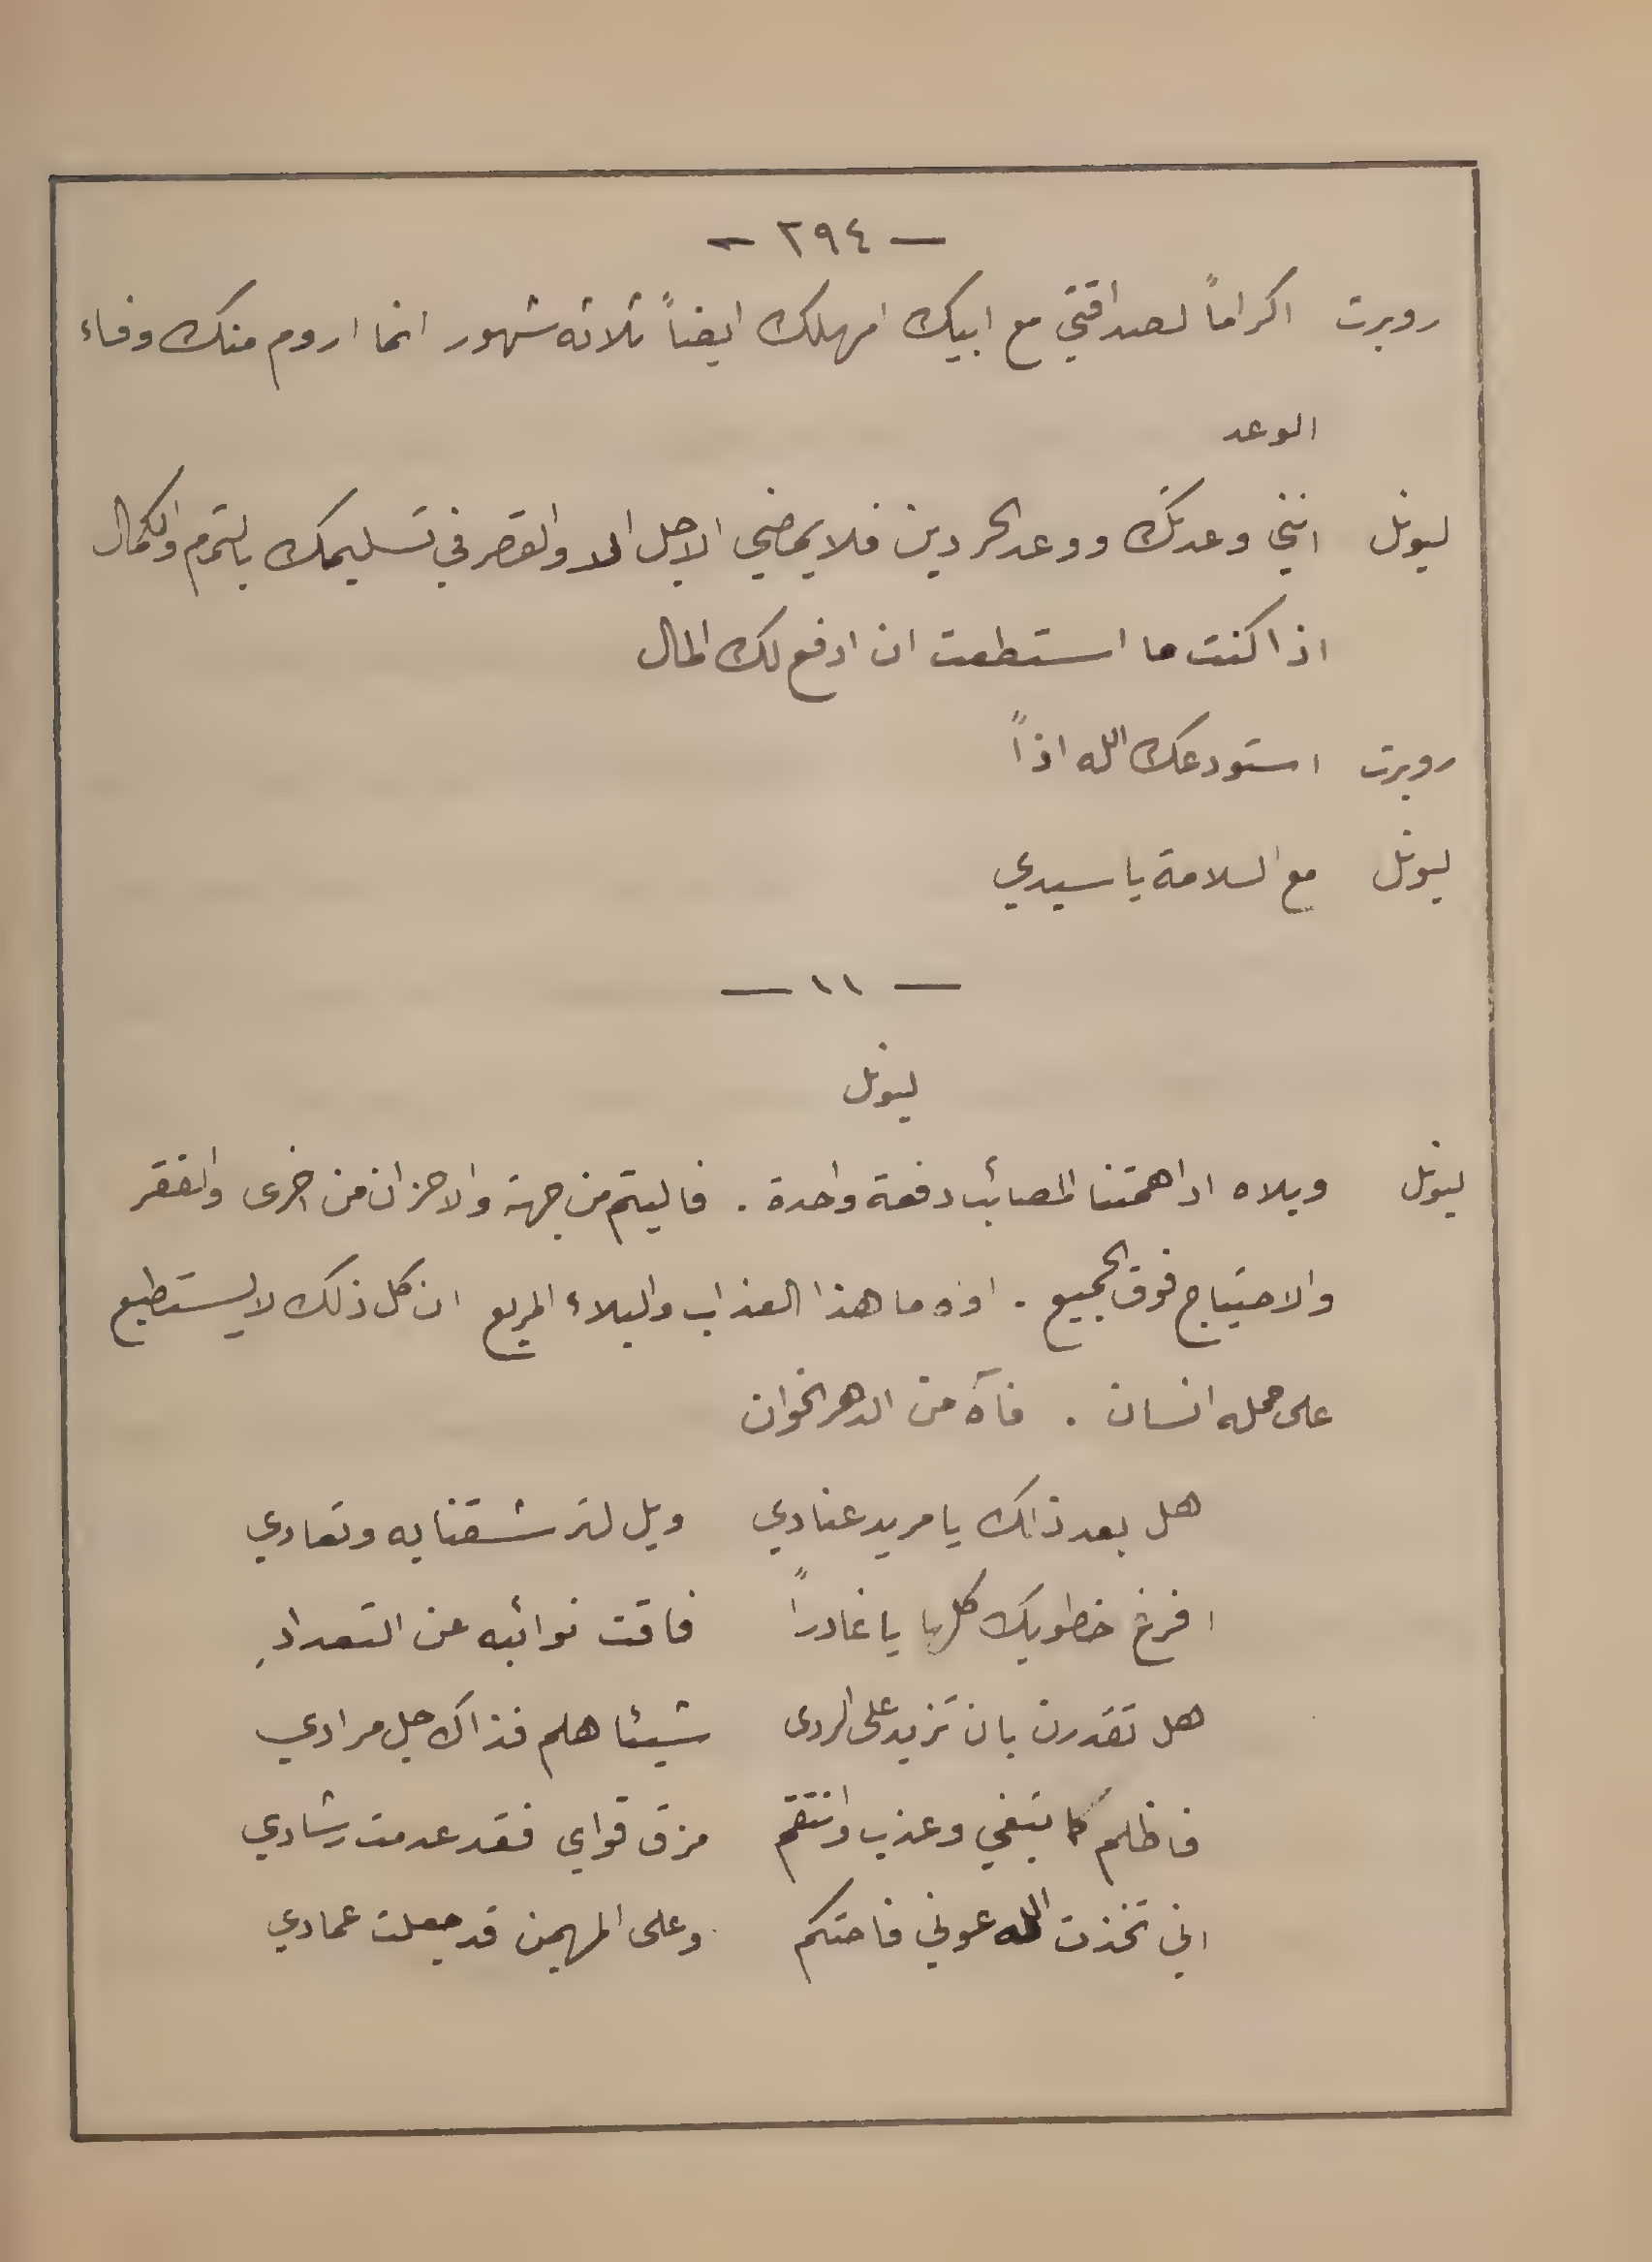 — ٢٩٤ —
روبرت اكراماً لصداقتي مع ابيك امهلك ايضاً ثلاثه شهور انما اروم منك وفاء
الوعد
ليونل انني وعدتك ووعد الحر دين فلا يمضي الاجل الا والقصر في تسليمك بالتمام والكمال
اذا كنت ما استطعت ان ادفع لك المال
روبرت استودعك الله اذاً
ليونل مع السلامة يا سيدي
— ١١ —
ليونل
ليونل ويلاه اداهمتنا المصائب دفعة واحدة . فاليتم من جهة والاحزان من اخرى والفقر
والاحتياج فوق الجميع . اوه ما هذا العذاب والبلاء المريع ان كل ذلك لا يستطيع
على حمله انسان . فآه من الدهر الخوان
هل بعد ذلك يا مريد عنادي ويل لتر شقنا به وتعادي
افرغ خطوبك كلها يا غادراً فاقت نوائبه عن التعدادِ
هل تقدرن بان تزيد على الردى شيئا هلم فذاك جل مرادي
فاظلم كما تبغي وعذب وانتقم مزق قواي فقد عدمت رشادي
اني تخذت الله عوني فاحتكم وعلى المهيمن قد جعلت عمادي